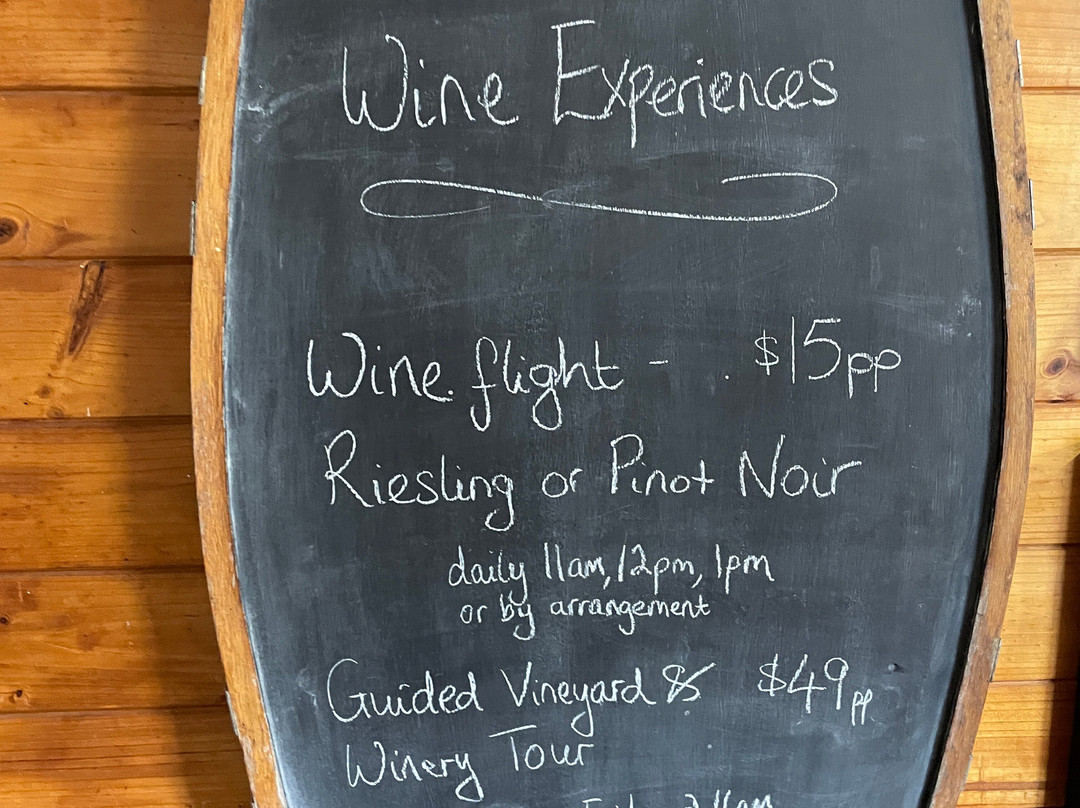 Wine Experiences
Wine flight - $15pp
Riesling or Pinot Noir
daily 11am, 12pm, 1pm
or by arrangement
Guided Vineyard & $49pp
Winery Tour
11am